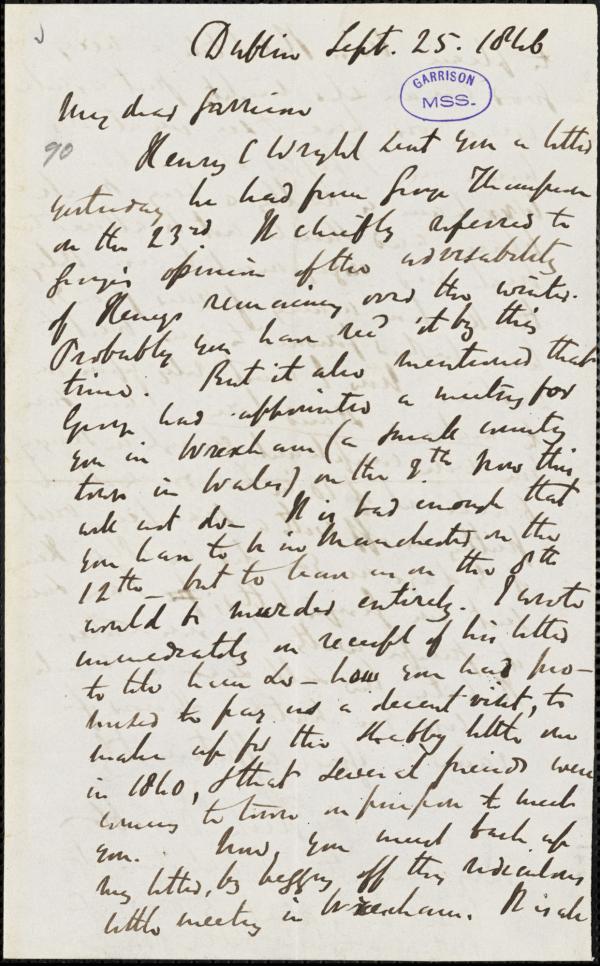 Dublin Sept. 25. 1846
GARRISON
MSS.
My dear Garrison
90
Henry C Wright sent you a letter
yesterday he had from George Thompson
on the 23rd. It chiefly referred to
George's opinion of the advisability
of Henry's remaining over the winter.
Probably you have recd it by this
time. But it also mentioned that
George had appointed a meeting for
you in Wrexham (a small county
town in Wales) on the 9th. Now this
will not do. It is bad enough that
you have to be in Manchester on the
12th - but to leave us on the 8th
would be murder entirely. I wrote
immediately on receipt of his letter
to tell him so - how you had pro-
mised to pay us a decent visit, to
make up for the shabby little one
in 1840, & that several friends were
coming to town on purpose to meet
you. Now, you must back up
my letter, by begging off this ridiculous
little meeting in Wrexham. It is all